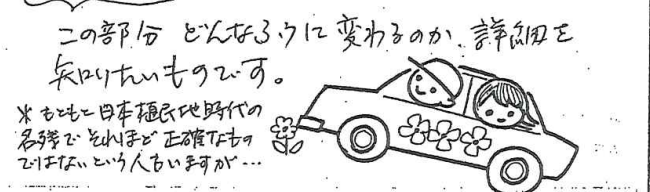 この部分 どんなふうに変わるのか、詳細を
知りたいものです。
※もともと日本植民地時代の
名残で それほど正確なもの
ではないという人もいますが…